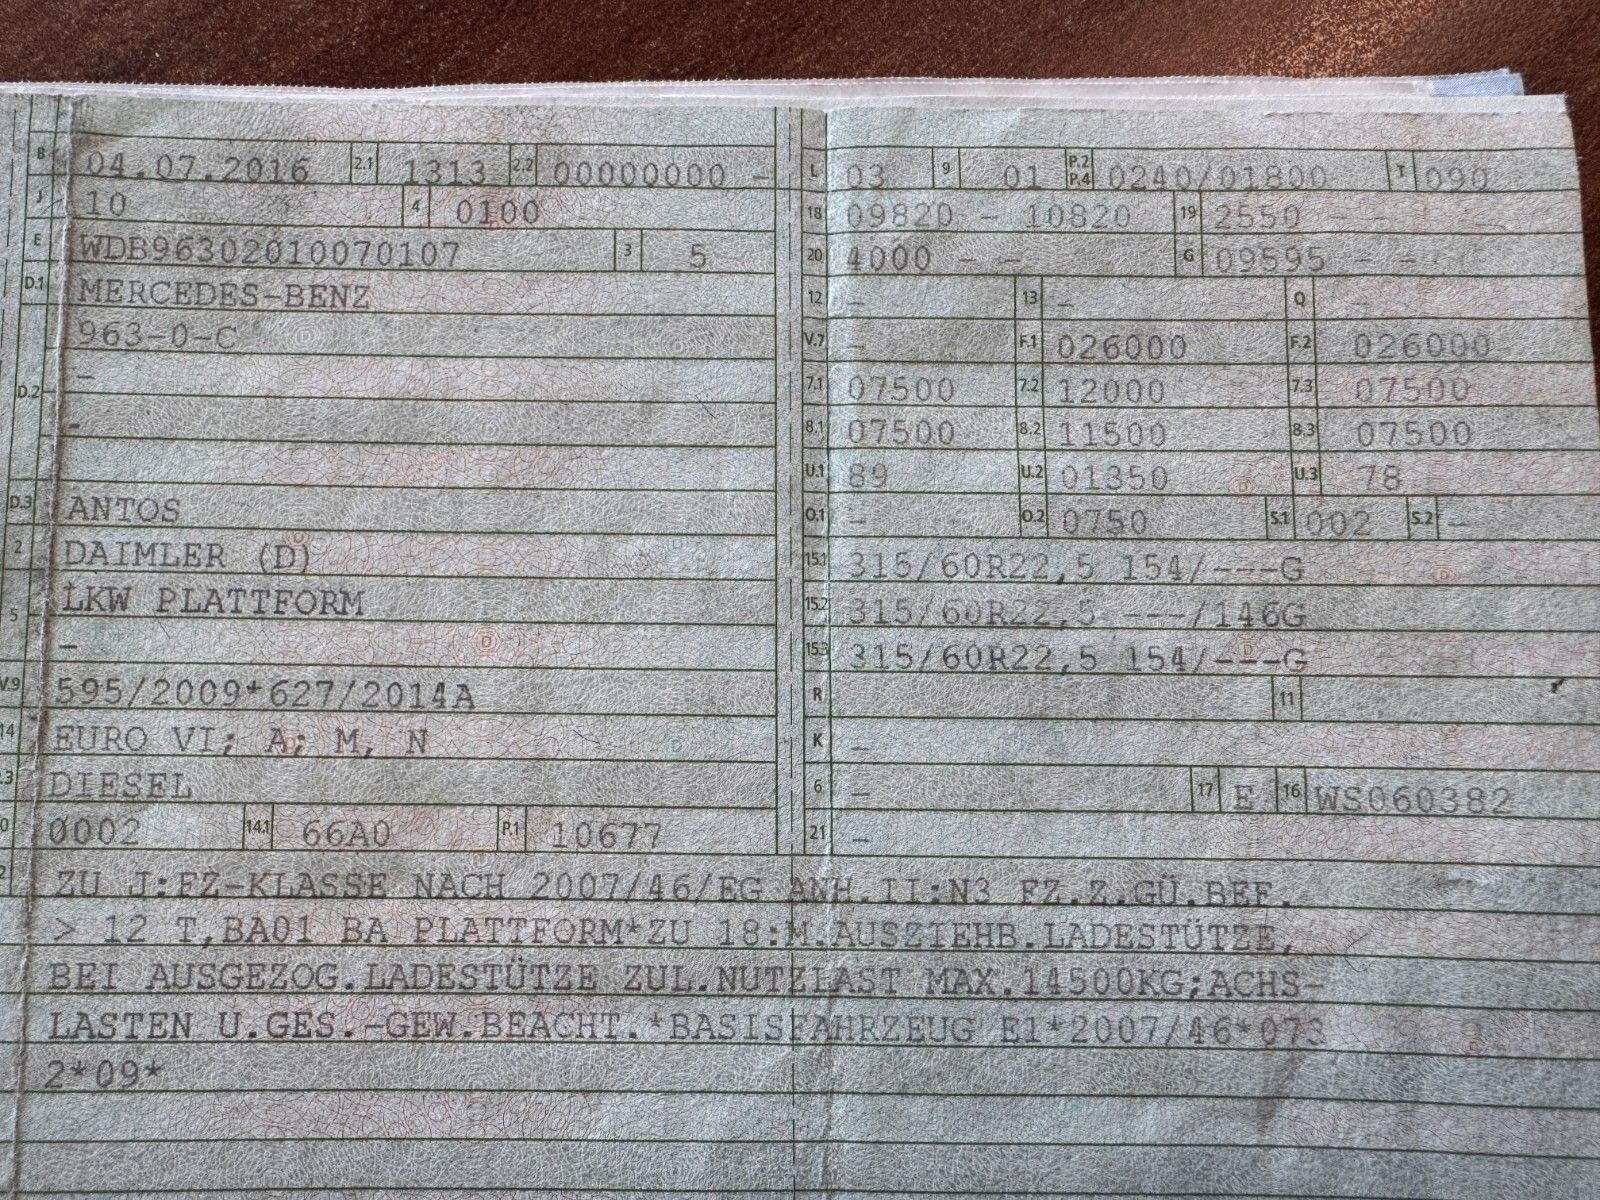 B 04.07.2016 2.1 1313 2.2 00000000 -
J 10 4 0100
E WDB96302010070107 3 5
D.1 MERCEDES-BENZ
963-0-C
D.2 -
-
D.3 ANTOS
2 DAIMLER (D)
5 LKW PLATTFORM
-
V.9 595/2009*627/2014A
14 EURO VI; A; M, N
P.3 DIESEL
10 0002 14.1 66A0 P.1 10677
L 03 9 01 P.2 P.4 0240/01800 T 090
18 09820 - 10820 19 2550 - -
20 4000 - - G 09595 - -
12 - 13 - Q -
V.7 - F.1 026000 F.2 026000
7.1 07500 7.2 12000 7.3 07500
8.1 07500 8.2 11500 8.3 07500
U.1 89 U.2 01350 U.3 78
O.1 - O.2 0750 S.1 002 S.2 -
15.1 315/60R22,5 154/---G
15.2 315/60R22,5 ---/146G
15.3 315/60R22,5 154/---G
R 11
K -
6 - 17 E 16 WS060382
21 -
ZU J:FZ-KLASSE NACH 2007/46/EG ANH.II:N3 FZ.Z.GÜ.BEF.
> 12 T,BA01 BA PLATTFORM*ZU 18:M.AUSZIEHB.LADESTÜTZE,
BEI AUSGEZOG.LADESTÜTZE ZUL.NUTZLAST MAX.14500KG;ACHS-
LASTEN U.GES.-GEW.BEACHT.*BASISFAHRZEUG E1*2007/46*073
2*09*